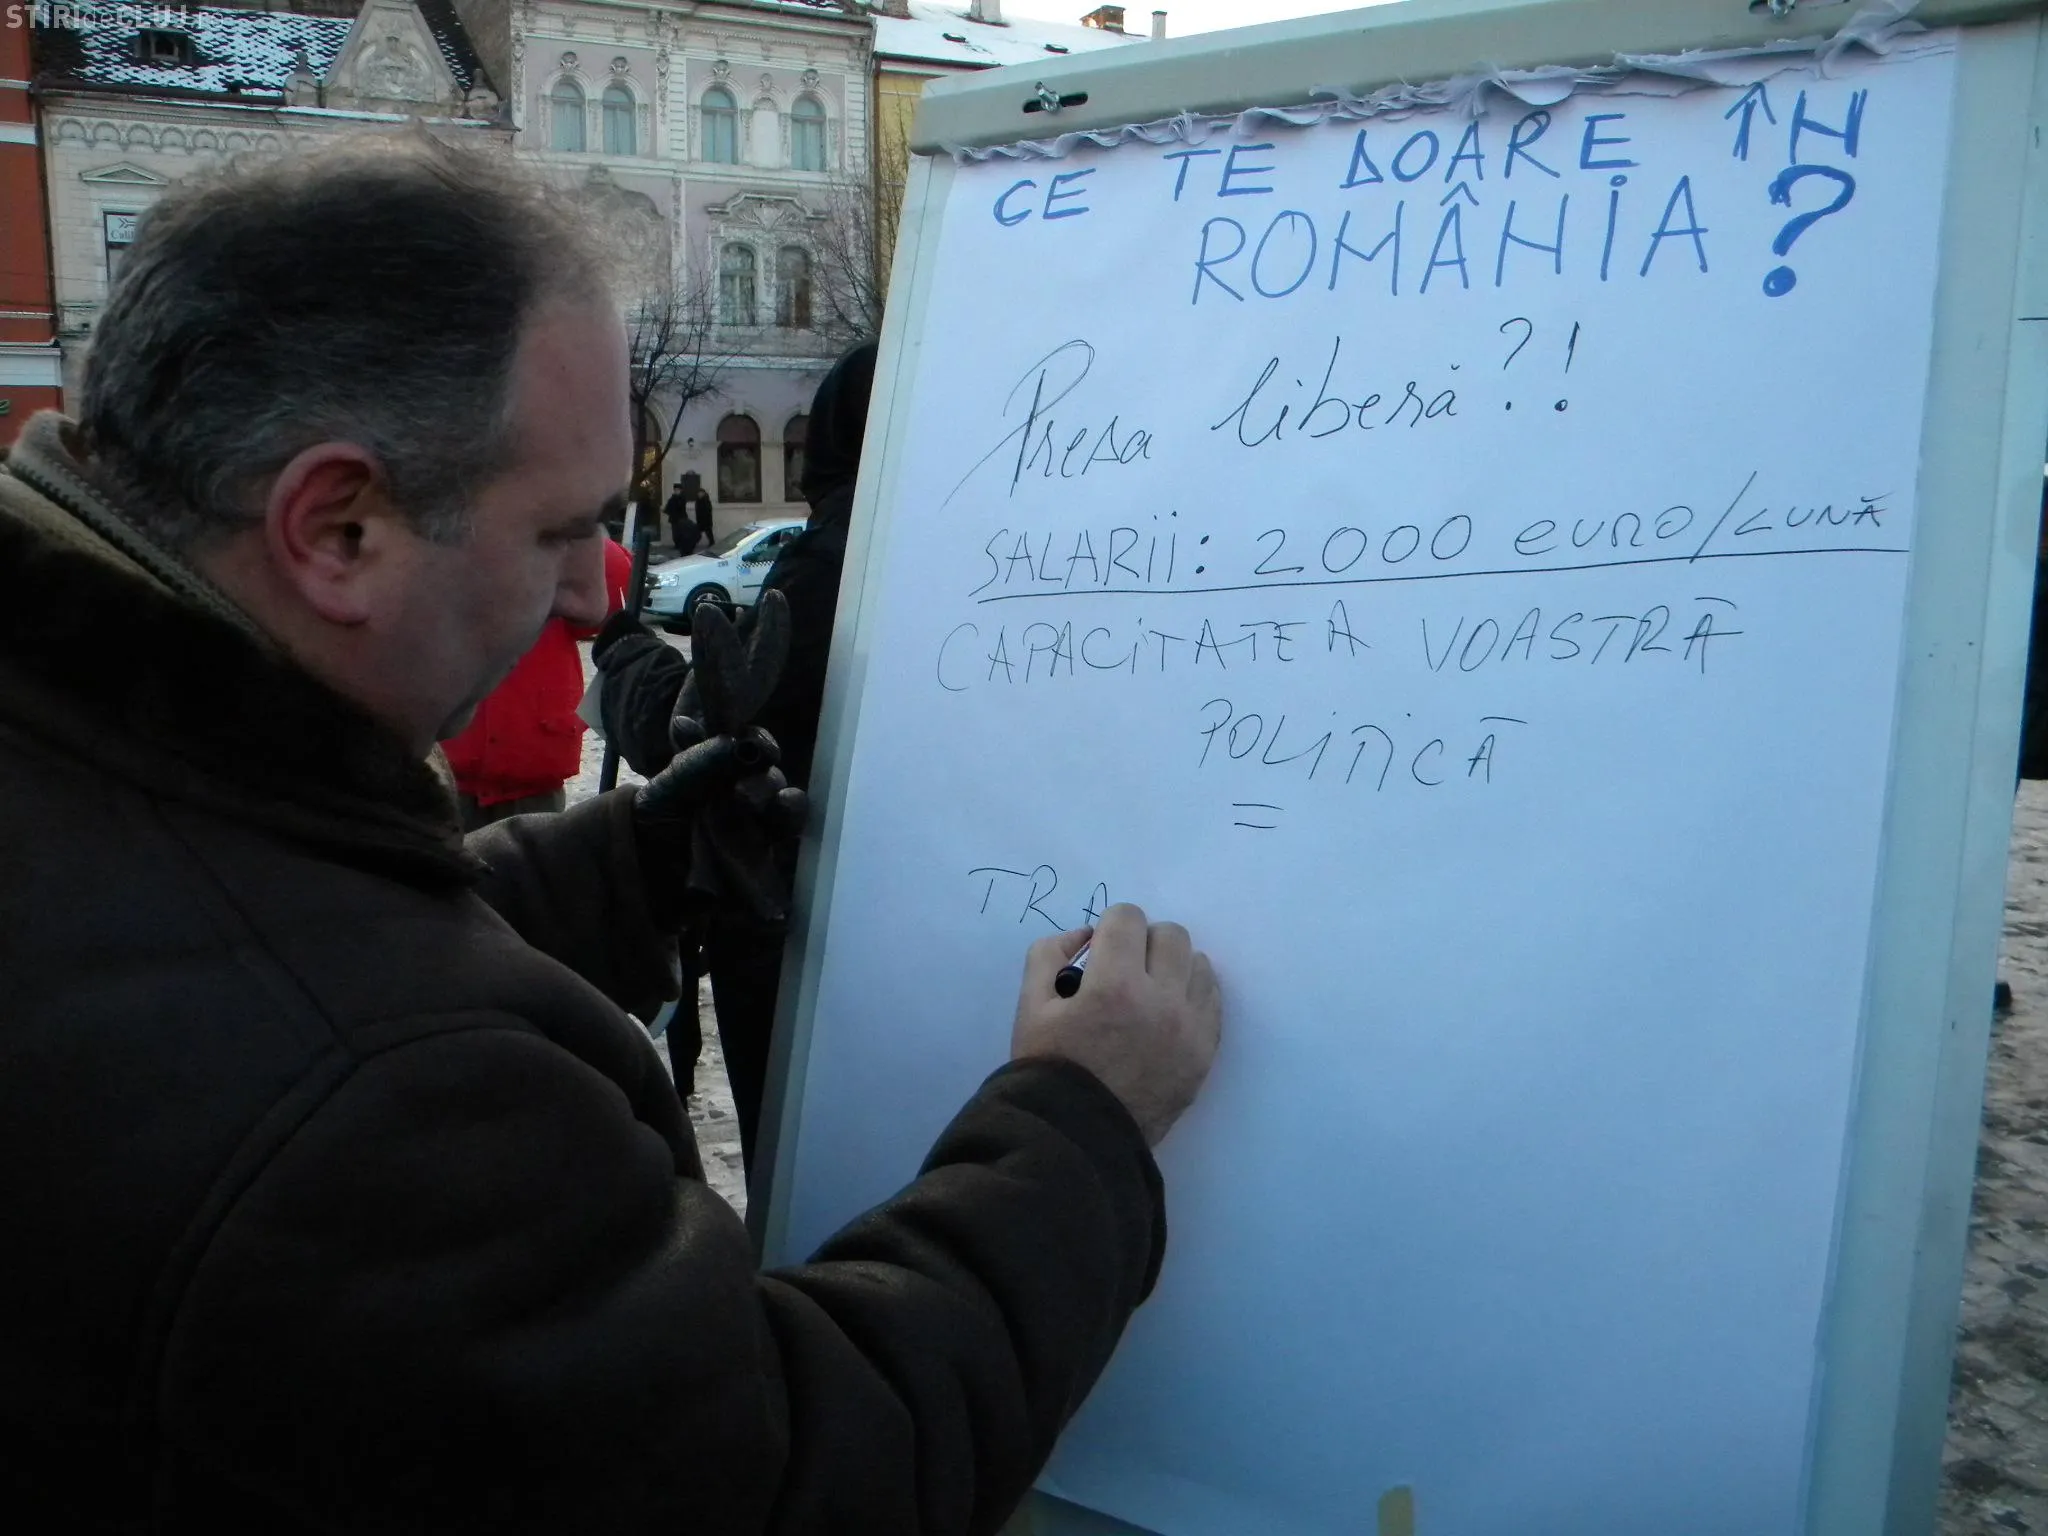 STIRIdeCLUJ.ro
CE TE DOARE ÎN
ROMÂNIA?
Presa liberă?!
SALARII: 2000 EURO/LUNĂ
CAPACITATEA VOASTRĂ
POLITICĂ
=
TRA